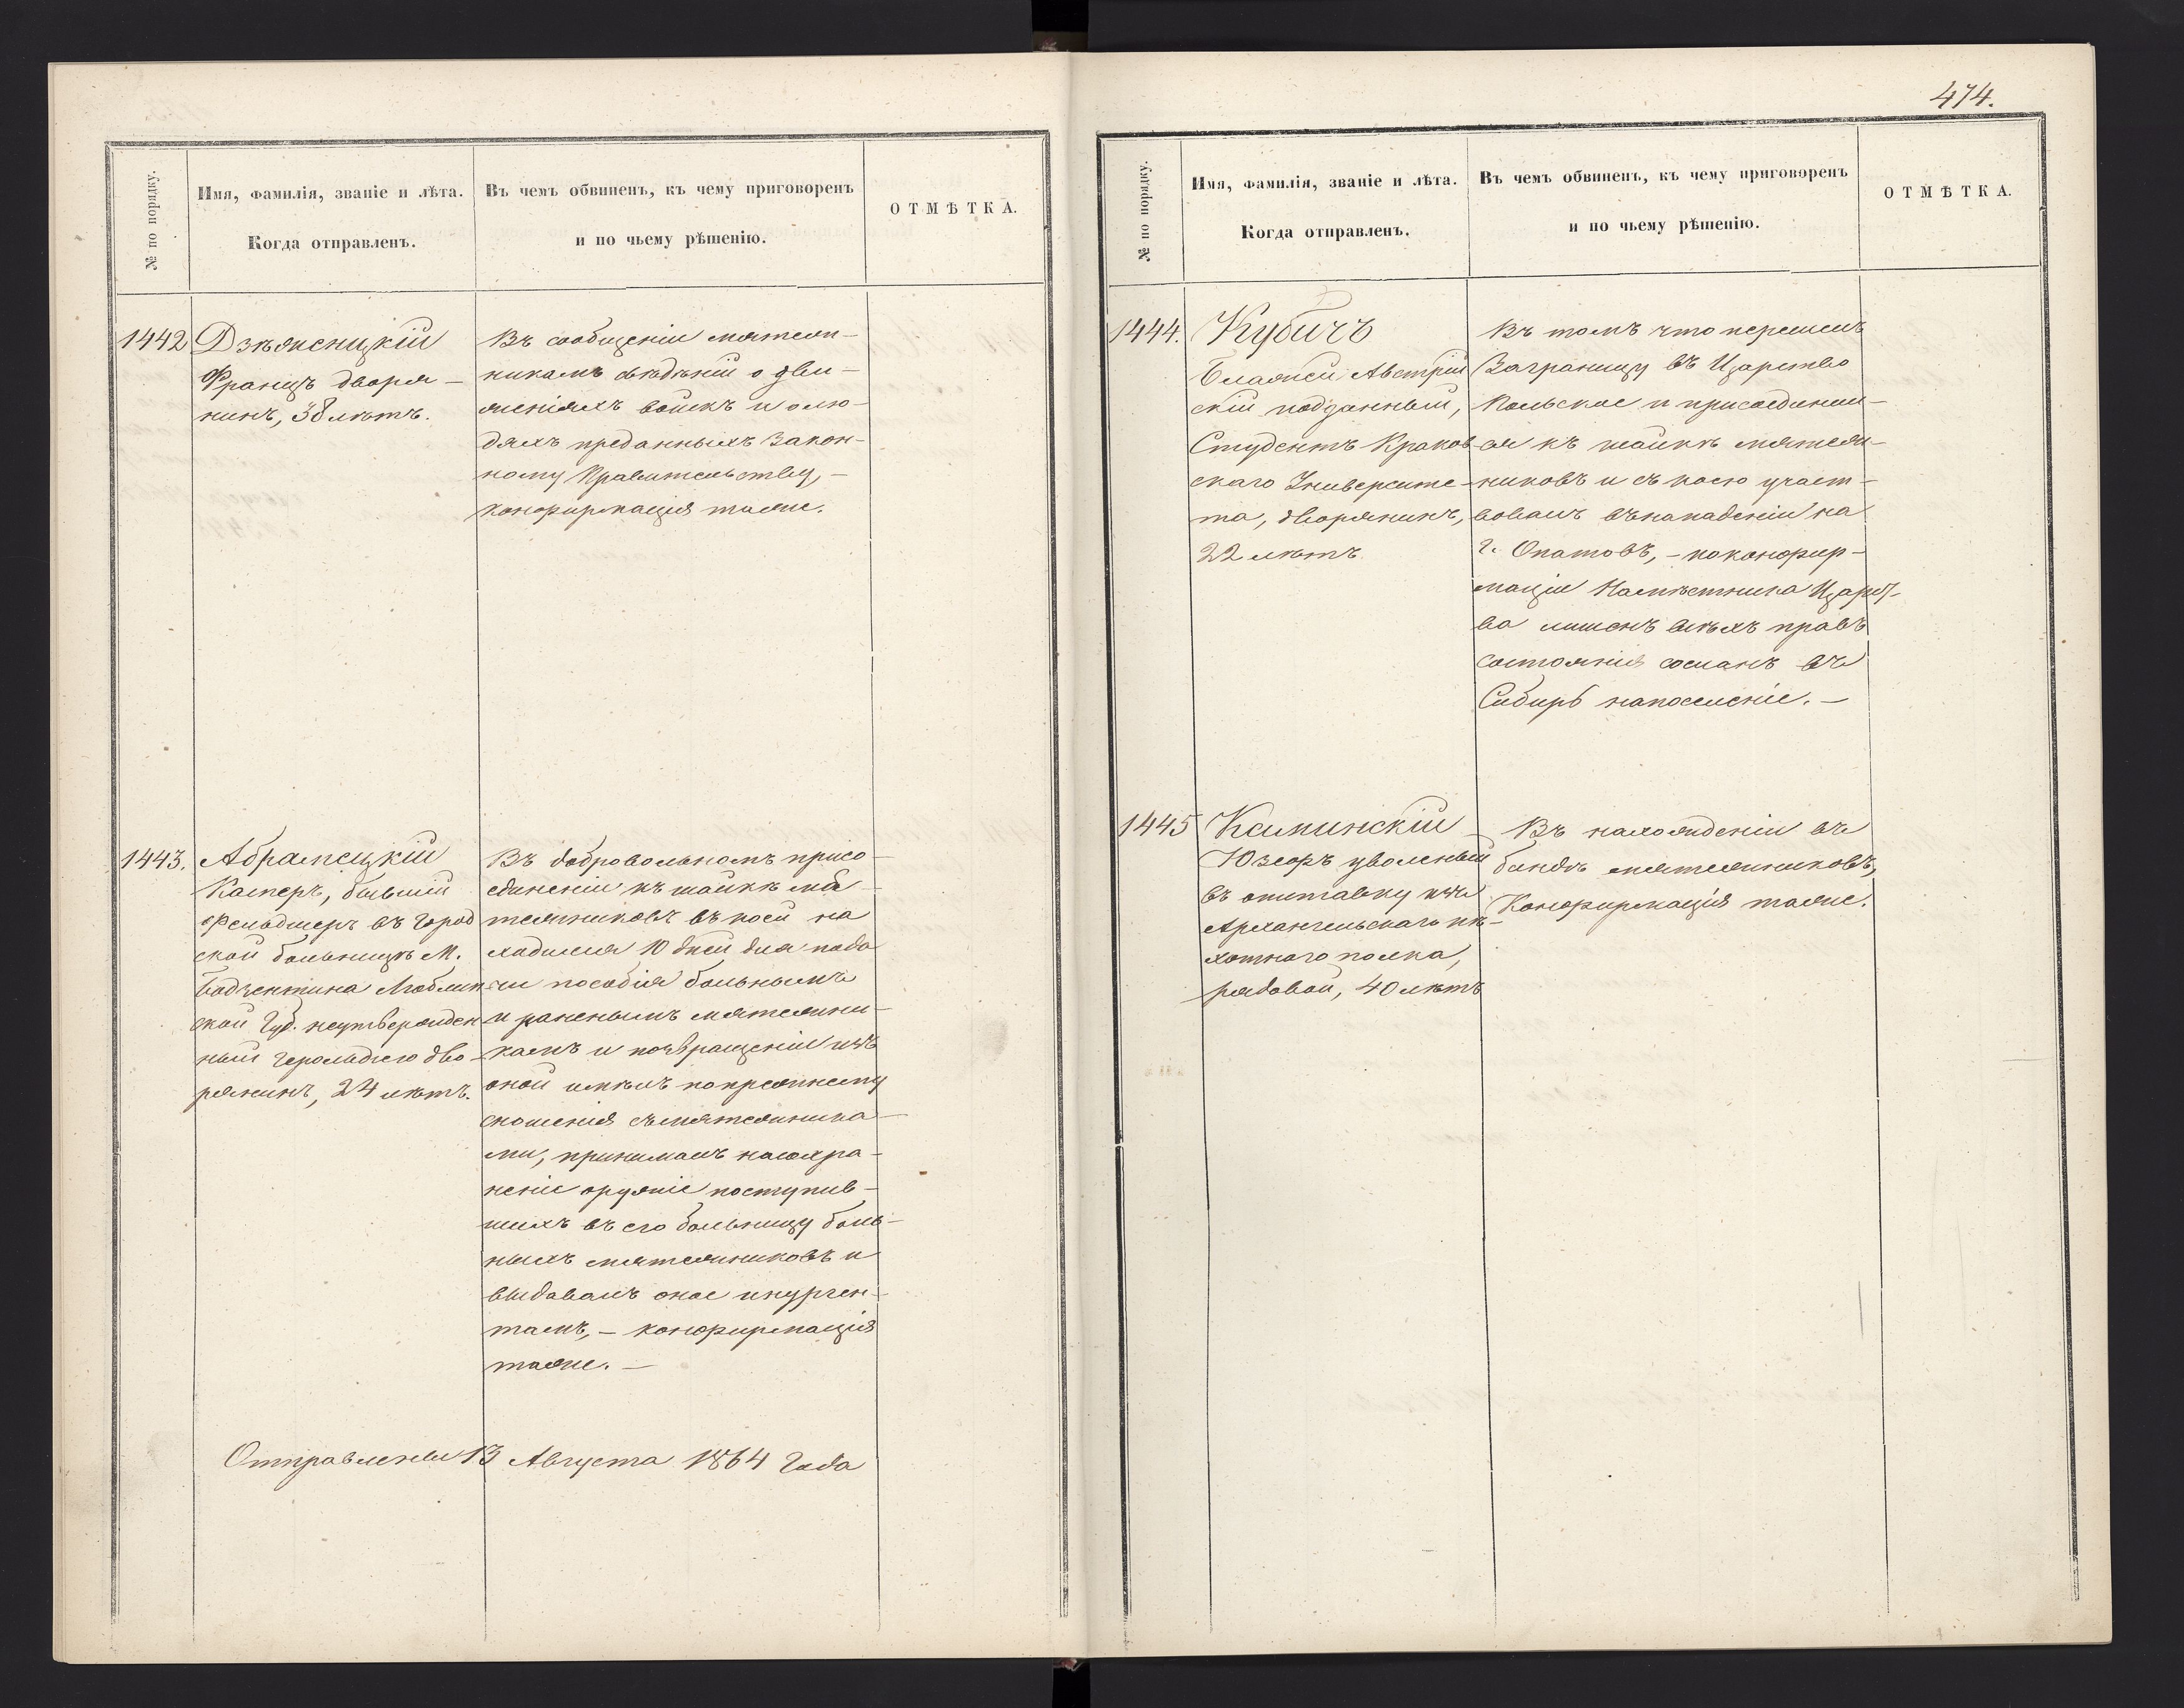 474.
№ по порядку.
Имя, фамилія, званіе и лѣта.
Когда отправленъ.
Въ чемъ обвиненъ, къ чему приговоренъ
и по чьему рѣшенію.
ОТМѢТКА.
1442
Дзѣржецкій
Францъ дворя-
нинъ, 38 лѣтъ.
Въ сообщеніи мятеж-
никамъ свѣдѣній о дви-
женіяхъ войскъ и о лю-
дяхъ преданныхъ Закон-
ному Правительству, -
конфирмація таже.
1443.
Абрамецкій
Касперъ, бывшій
Фельдшеръ въ Город
ской больницѣ М.
Бодзентина Люблин
ской Губ. неутвержден
ный Герольдіею дво-
рянинъ, 24 лѣтъ.
Въ добровольномъ присо-
единеніи къ шайкѣ мя-
тежниковъ въ коей на
ходился 10 дней для пода
чи пособія больнымъ
и раненымъ мятежни-
камъ и по возвращеніи изъ
оной имѣлъ по прежнему
сношенія съ мятежника-
ми, принималъ на сохра-
неніе оружіе поступив-
шихъ въ его больницу боль-
ныхъ мятежниковъ и
выдавалъ оное инурген-
тамъ, - конфирмація
таже. -
Отправлены 13 Августа 1864 Года
№ по порядку.
Имя, фамилія, званіе и лѣта.
Когда отправленъ.
Въ чемъ обвиненъ, къ чему приговоренъ
и по чьему рѣшенію.
ОТМѢТКА.
1444.
Кубичъ
Блажей Австрій
скій подданный,
Студентъ Краков
скаго Университе-
та, дворянинъ,
22 лѣтъ
Въ томъ что перешелъ
Заграницу въ Царство
Польское и присоединил-
ся къ шайкѣ мятеж-
никовъ и съ коею участ-
вовалъ въ нападеніи на
г. Опатовъ, - по конфир-
маціи Намѣстника Царст-
ва лишенъ всѣхъ правъ
состоянія сосланъ въ
Сибирь на поселеніе. -
1445
Каминскій
Юзефъ уволеный
въ отставку изъ
Архангельскаго пѣ-
хотнаго полка,
рядовой, 40 лѣтъ
Въ нахожденіи въ
бандѣ мятежниковъ,
Конфирмація таже.